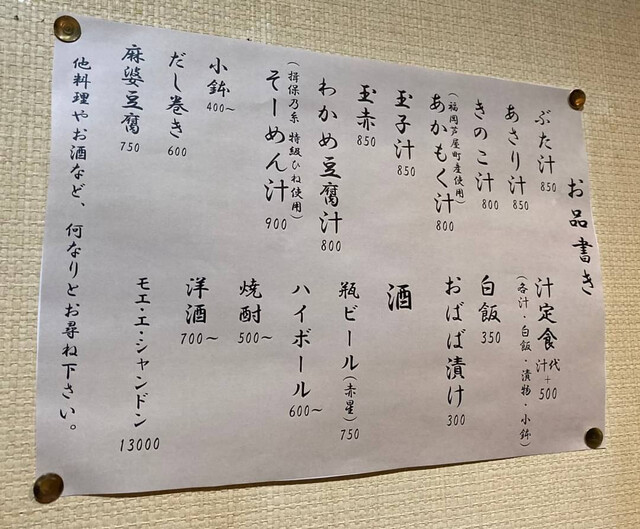 お品書き
ぶた汁 850
あさり汁 850
きのこ汁 800
あかもく汁 800
(福岡芦屋町産使用)
玉子汁 850
玉赤 850
わかめ豆腐汁 800
そーめん汁 900
(揖保乃糸 特級ひね使用)
小鉢 400〜
だし巻き 600
麻婆豆腐 750
汁定食 汁代+500
(各汁・白飯・漬物・小鉢)
白飯 350
おばば漬け 300
酒
瓶ビール(赤星) 750
ハイボール 600〜
焼酎 500〜
洋酒 700〜
モエ・エ・シャンドン 13000
他料理やお酒など、何なりとお尋ね下さい。